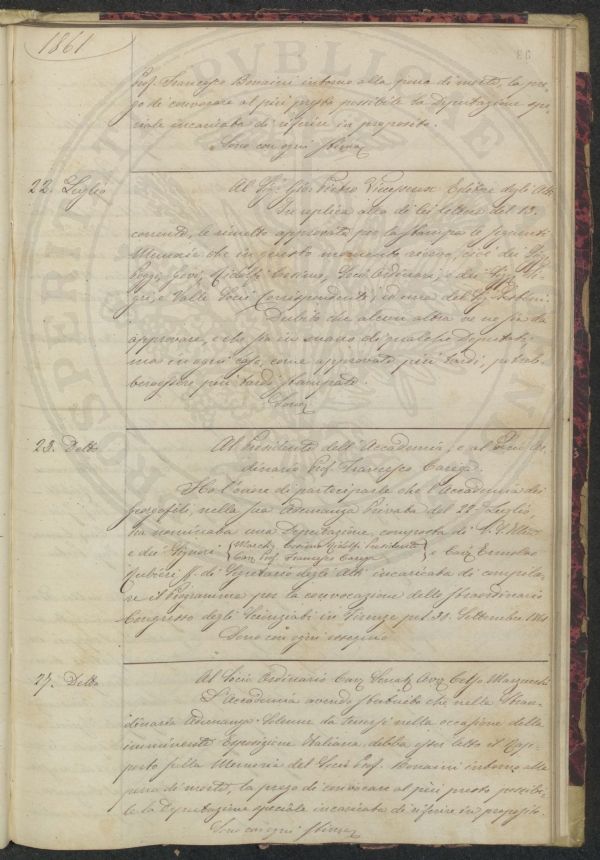 1861
93
Prof. Francesco Bonaini intorno alla pena di morte, la pre-
go di convocare al più presto possibile la Deputazione spe-
ciale incaricata di riferire in proposito.
Sono con ogni stima
22. Luglio
Al Sig. Gio. Pietro Vieusseux Editore degli Atti
In replica alla di lei lettera del 13.
corrente, le rimetto approvate per la stampa le seguenti
Memorie che in questo momento ricevo, cioè dei Sigg.
Poggi, Govi, Ridolfi Cosimo, Socj Ordinarj e dei Sigg.
e Valle Socii Corrispondenti, ed una del Sig.
Dubito che alcun altra ve ne sia da
approvare, e che sia in mano di qualche Deputato;
ma in ogni caso, come approvate più tardi, potreb-
bero essere più tardi stampate.
Sono
23. Detto
Al Presidente dell'Accademia, e al Socio Or-
dinario Prof. Francesco Carega.
Ho l'onore di parteciparle che l'Accademia dei
Georgofili, nella sua Adunanza privata del 22 Luglio
ha nominata una Deputazione, composta di V. S. Illma
e dei Signori (March. Cosimo Ridolfi Presidente
Cav. Prof. Francesco Carega) e Cav. Ermolao
Rubieri ff. di Segretario degli Atti incaricata di compila-
re il Programma per la convocazione dello straordinario
Congresso degli Scienziati in Firenze pel 30. Settembre 1861
Sono con ogni ossequio
27. Detto
Al Socio Ordinario Cav. Senat. Avv. Celso Marzucchi
L'Accademia avendo stabilito che nella Straor-
dinaria Adunanza Solenne da tenersi nella occasione della
imminente Esposizione Italiana debba esser letto il Rap-
porto sulla Memoria del Socio Prof. Bonaini intorno alla
pena di morte, la prego di convocare al più presto possibi-
le la Deputazione speciale incaricata di riferire in proposito
Sono con ogni stima